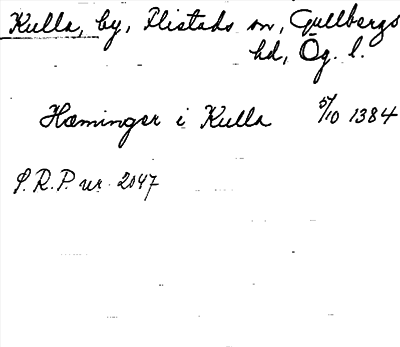 Kulla, by, Flistads sn, Gullbergs
hd, Ög. l.
Hæminger i Kulla 5/10 1384
S.R.P. nr 2047